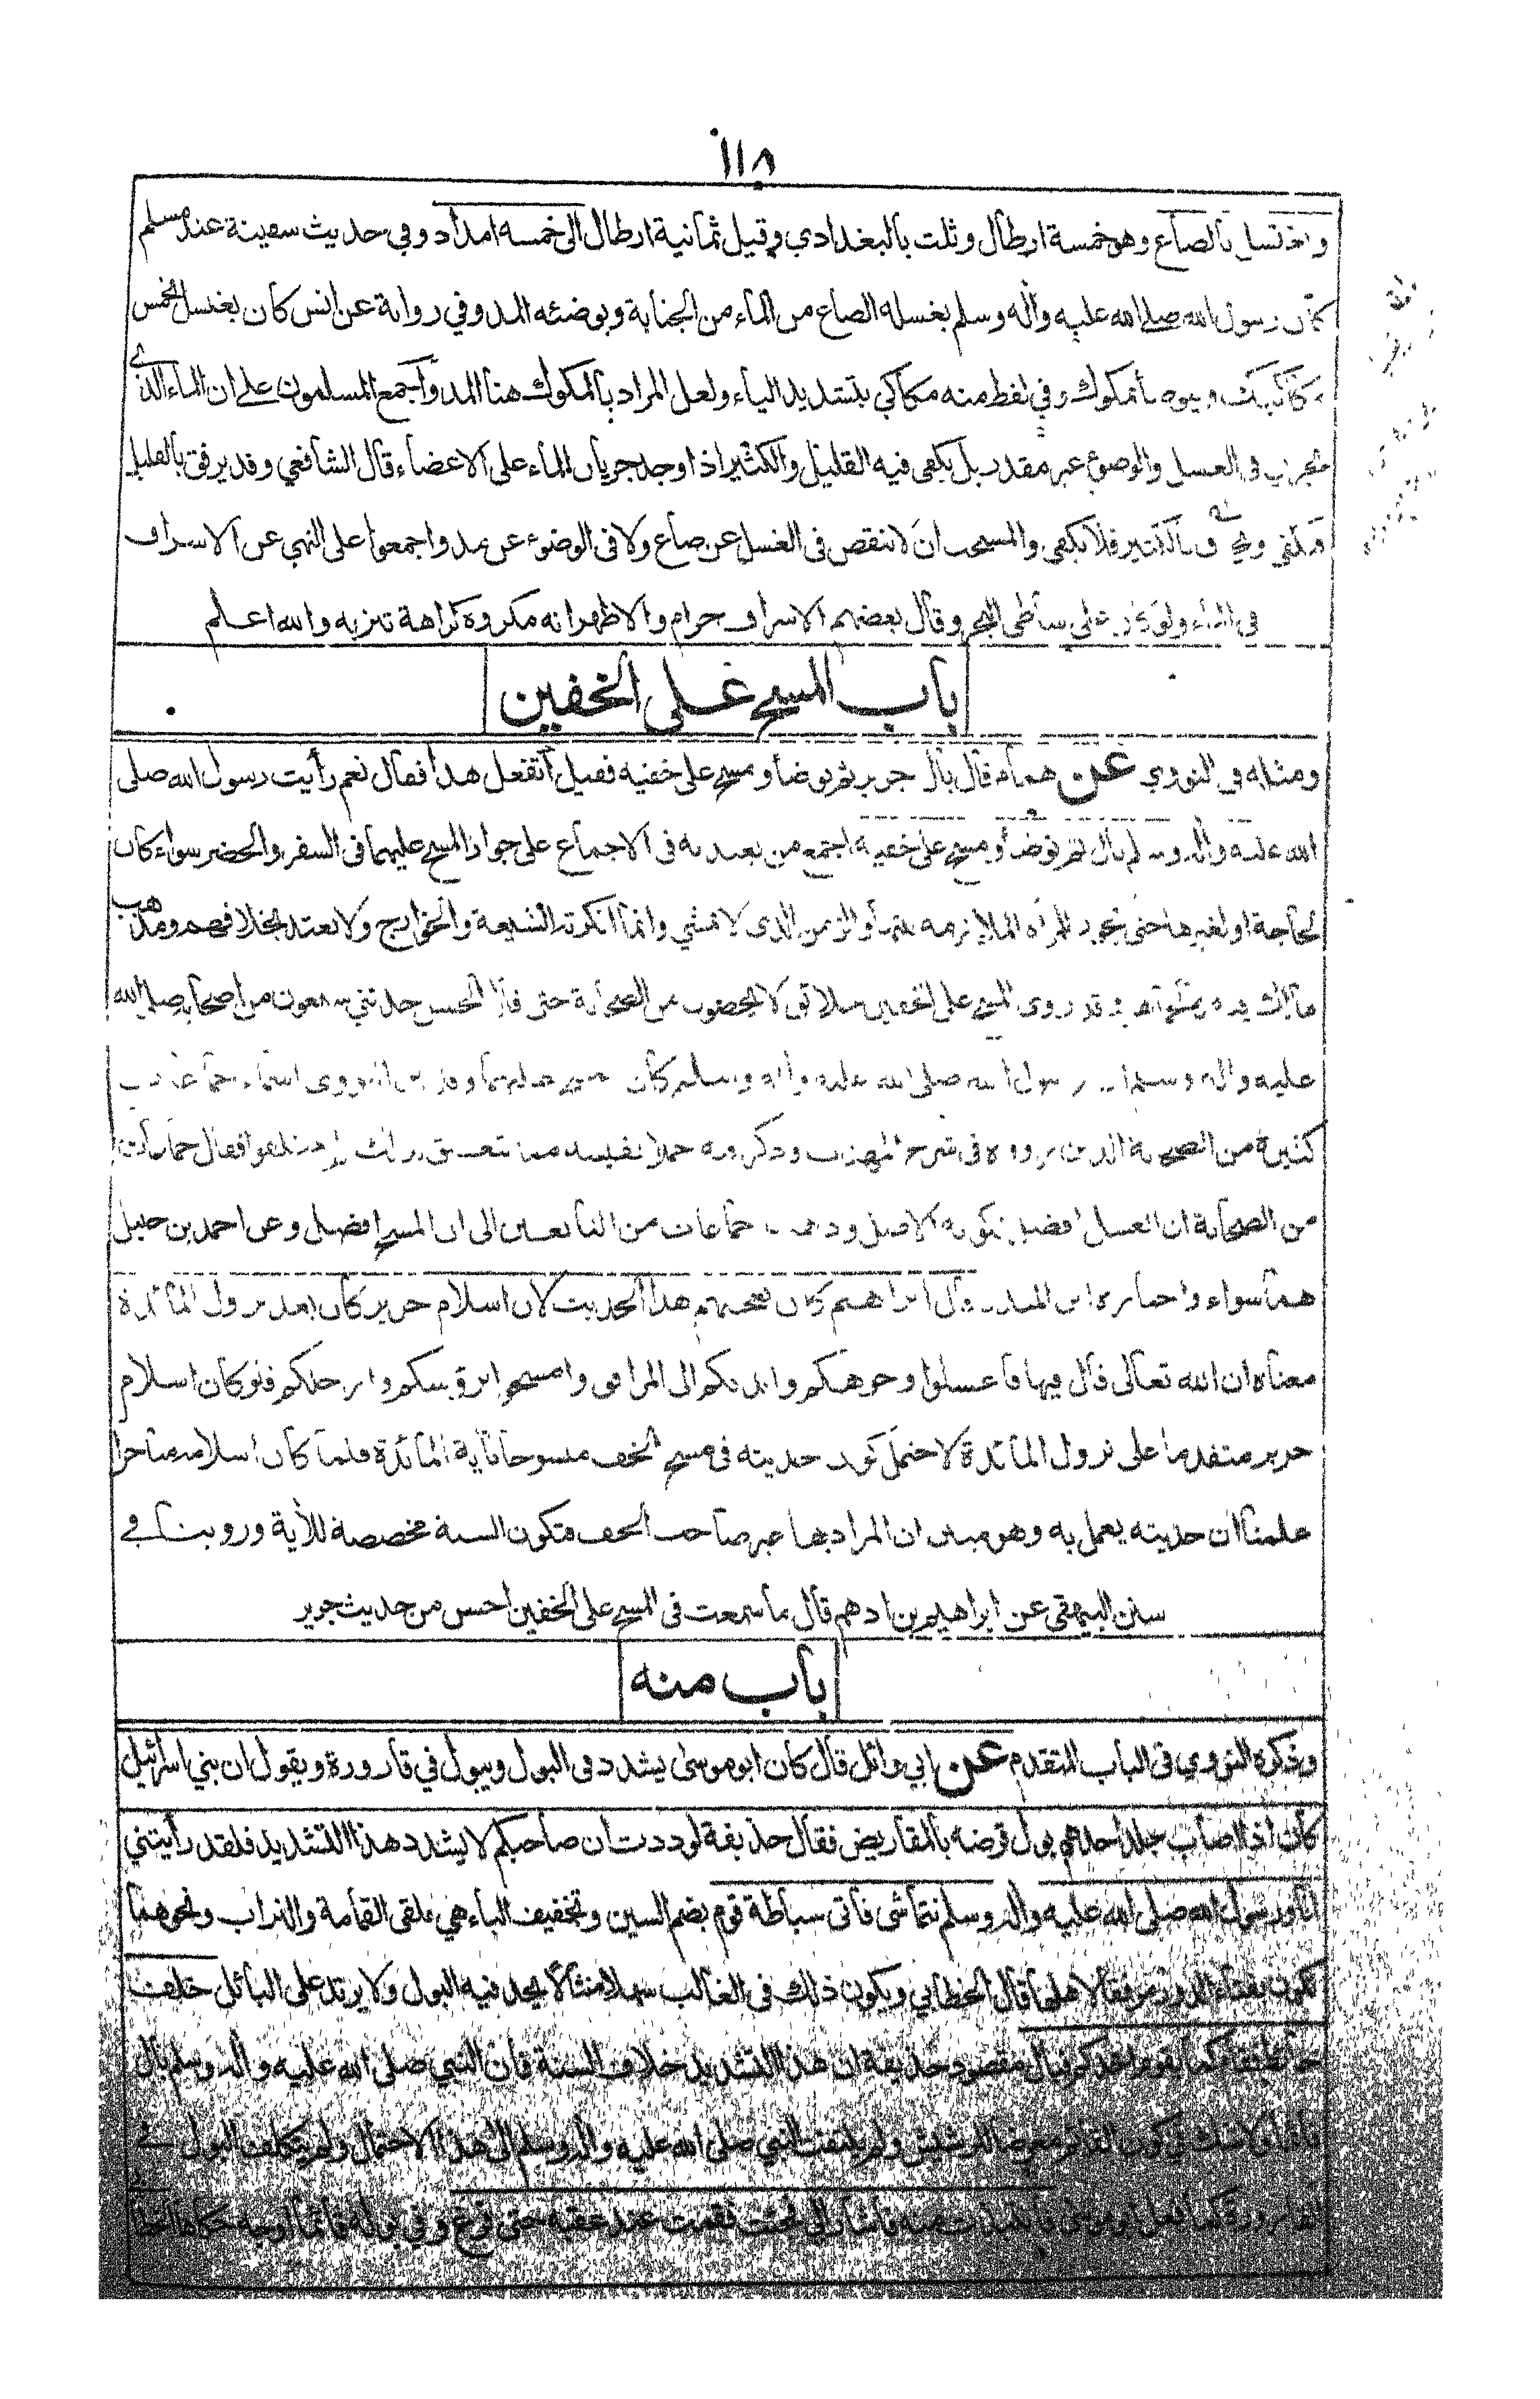 ١١٨
ويغتسل بالصاع وهو خمسة ارطال وثلث بالبغدادي وقيل ثمانية ارطال الى خمسة امداد وفي حديث سفينة عند مسلم
كان رسول الله صلى الله عليه وآله وسلم يغسله الصاع من الماء من الجنابة ويوضئه المد وفي رواية عن انس كان يغتسل بخمس
مكاكيك ويتوضأ بمكوك وفي لفظ منه مكاكي بتشديد الياء ولعل المراد بالمكوك هنا المد واجمع المسلمون على ان الماء الذي
يجزئ في الغسل والوضوء غير مقدر بل يكفي فيه القليل والكثير اذا وجد جريان الماء على الاعضاء قال الشافعي وقد يرفق بالقليل
فيكفي ويخرق بالكثير فلا يكفي والمستحب ان لا ينقص في الغسل عن صاع ولا في الوضوء عن مد واجمعوا على النهي عن الاسراف
في الماء ولو كان على شاطئ البحر وقال بعضهم الاسراف حرام والاظهر انه مكروه كراهة تنزيه والله اعلم
باب المسح على الخفين
ومثله في النووي عن همام قال بال جرير ثم توضأ ومسح على خفيه فقيل أتفعل هذا فقال نعم رأيت رسول الله صلى
الله عليه وآله وسلم بال ثم توضأ ومسح على خفيه اجمع من يعتد به في الاجماع على جواز المسح عليهما في السفر والحضر سواء كان
لحاجة او لغيرها حتى يجوز للمرأة الملازمة بيتها والزمن الذي لا يمشي وانما انكرته الشيعة والخوارج ولا يعتد بخلافهم ومذهب
مالك فيه وقد روى المسح على الخفين خلائق لا يحصون من الصحابة حتى قال الحسن حدثني سبعون من اصحابه صلى الله
عليه وآله وسلم ان رسول الله صلى الله عليه وآله وسلم كان يمسح عليهما وقد بين النووي اسماء جماعات
كثيرة من الصحابة الذين رووه في شرح المهذب وذكر فيه جملا نفيسة مما يتعلق بذلك واختلفوا فقال جماعات
من الصحابة ان الغسل افضل لكونه الاصل وذهب جماعات من التابعين الى ان المسح افضل وعن احمد بن حنبل
هما سواء واختاره ابن المنذر قال ابراهيم كان يعجبهم هذا الحديث لان اسلام جرير كان بعد نزول المائدة
معناه ان الله تعالى قال فيها فاغسلوا وجوهكم وايديكم الى المرافق وامسحوا برؤسكم وارجلكم فلو كان اسلام
جرير متقدما على نزول المائدة لاحتمل كون حديثه في مسح الخف منسوخا بآية المائدة فلما كان اسلامه متاخرا
علمنا ان حديثه يعمل به وهو مبين ان المراد بها غير صاحب الخف فتكون السنة مخصصة للآية وروينا في
سنن البيهقي عن ابراهيم بن ادهم قال ما سمعت في المسح على الخفين احسن من حديث جرير
باب منه
وذكره النووي في الباب المتقدم عن ابي وائل قال كان ابو موسى يشدد في البول ويبول في قارورة ويقول ان بني اسرائيل
كان اذا اصاب جلد احدهم بول قرضه بالمقاريض فقال حذيفة لوددت ان صاحبكم لا يشدد هذا التشديد فلقد رأيتني
انا ورسول الله صلى الله عليه وآله وسلم نتماشى فأتى سباطة قوم بضم السين وتخفيف الباء هي ملقى القمامة والتراب ونحوهما
تكون بفناء الدور مرفقا لاهلها قال الخطابي ويكون ذلك في الغالب سهلا منثالا يحد فيه البول ولا يرتد على البائل خلف
حائط فقام كما يقوم احدكم فبال مقصود حذيفة ان هذا التشديد خلاف السنة فان النبي صلى الله عليه وآله وسلم بال
قائما ولا شك في كون القائم معرضا للرشيش ولم يلتفت النبي صلى الله عليه وآله وسلم الى هذا الاحتمال ولم يتكلف البول في
القارورة كما فعل ابو موسى فانتبذت منه فاشار الي فجئت فقمت عند عقبه حتى فرغ وفي بوله قائما اوجه حكاها الخطا